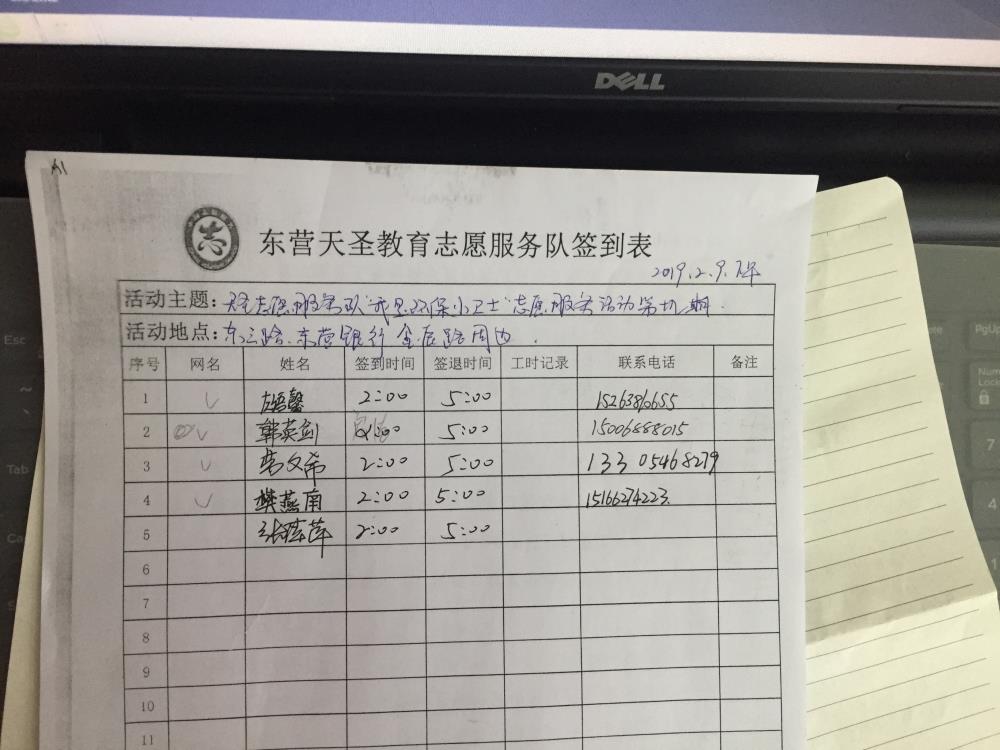 DELL
A1
志
东营天圣教育志愿服务队签到表
2019.2.9.下午
活动主题：天圣志愿服务队"我是环保小卫士"志愿服务活动第 期.
活动地点：东三路.东营银行 金辰路周边.
序号 网名 姓名 签到时间 签退时间 工时记录 联系电话 备注
1 2:00 5:00
2 韩英剑 2:00 5:00 15006888015
3 2:00 5:00 13305468279
4 樊燕南 2:00 5:00 15166274223.
5 2:00 5:00
6
7
8
9
10
11
Esc
Tab
PgUp
Num Lock
7
4
1